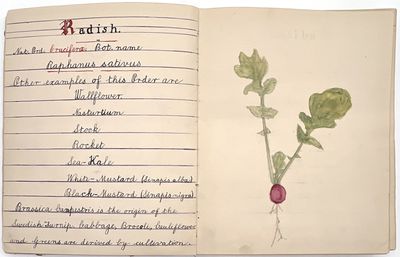 Radish.
Nat. Ord. Cruciferæ Bot. name
Raphanus sativus
Other examples of this Order are
Wallflower
Nasturtium
Stock
Rocket
Sea-Kale
White-Mustard (Sinapis alba)
Black-Mustard (Sinapis-nigra)
Brassica Campestris is the origin of the
Swedish Turnip. Cabbage, Brocole, Cauliflower
and Greens are derived by cultivation.